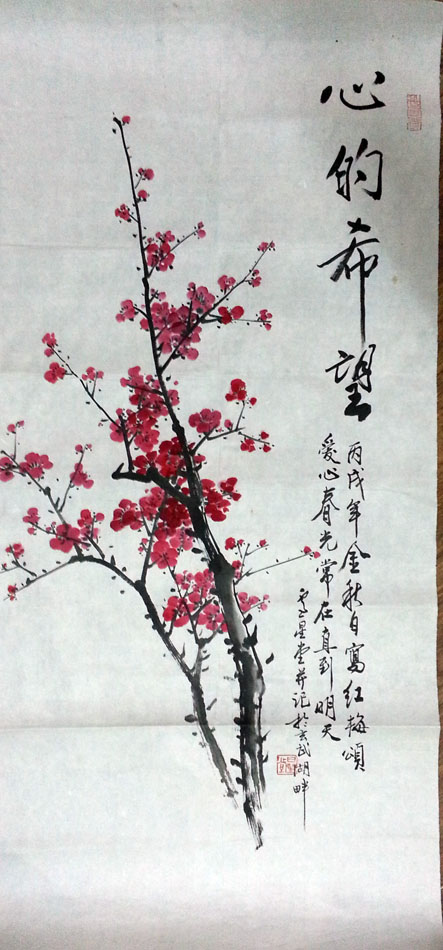 心的希望
丙戌年金秋自寫红梅頌
爱心春光常在直到明天
星堂并记於玄武湖畔